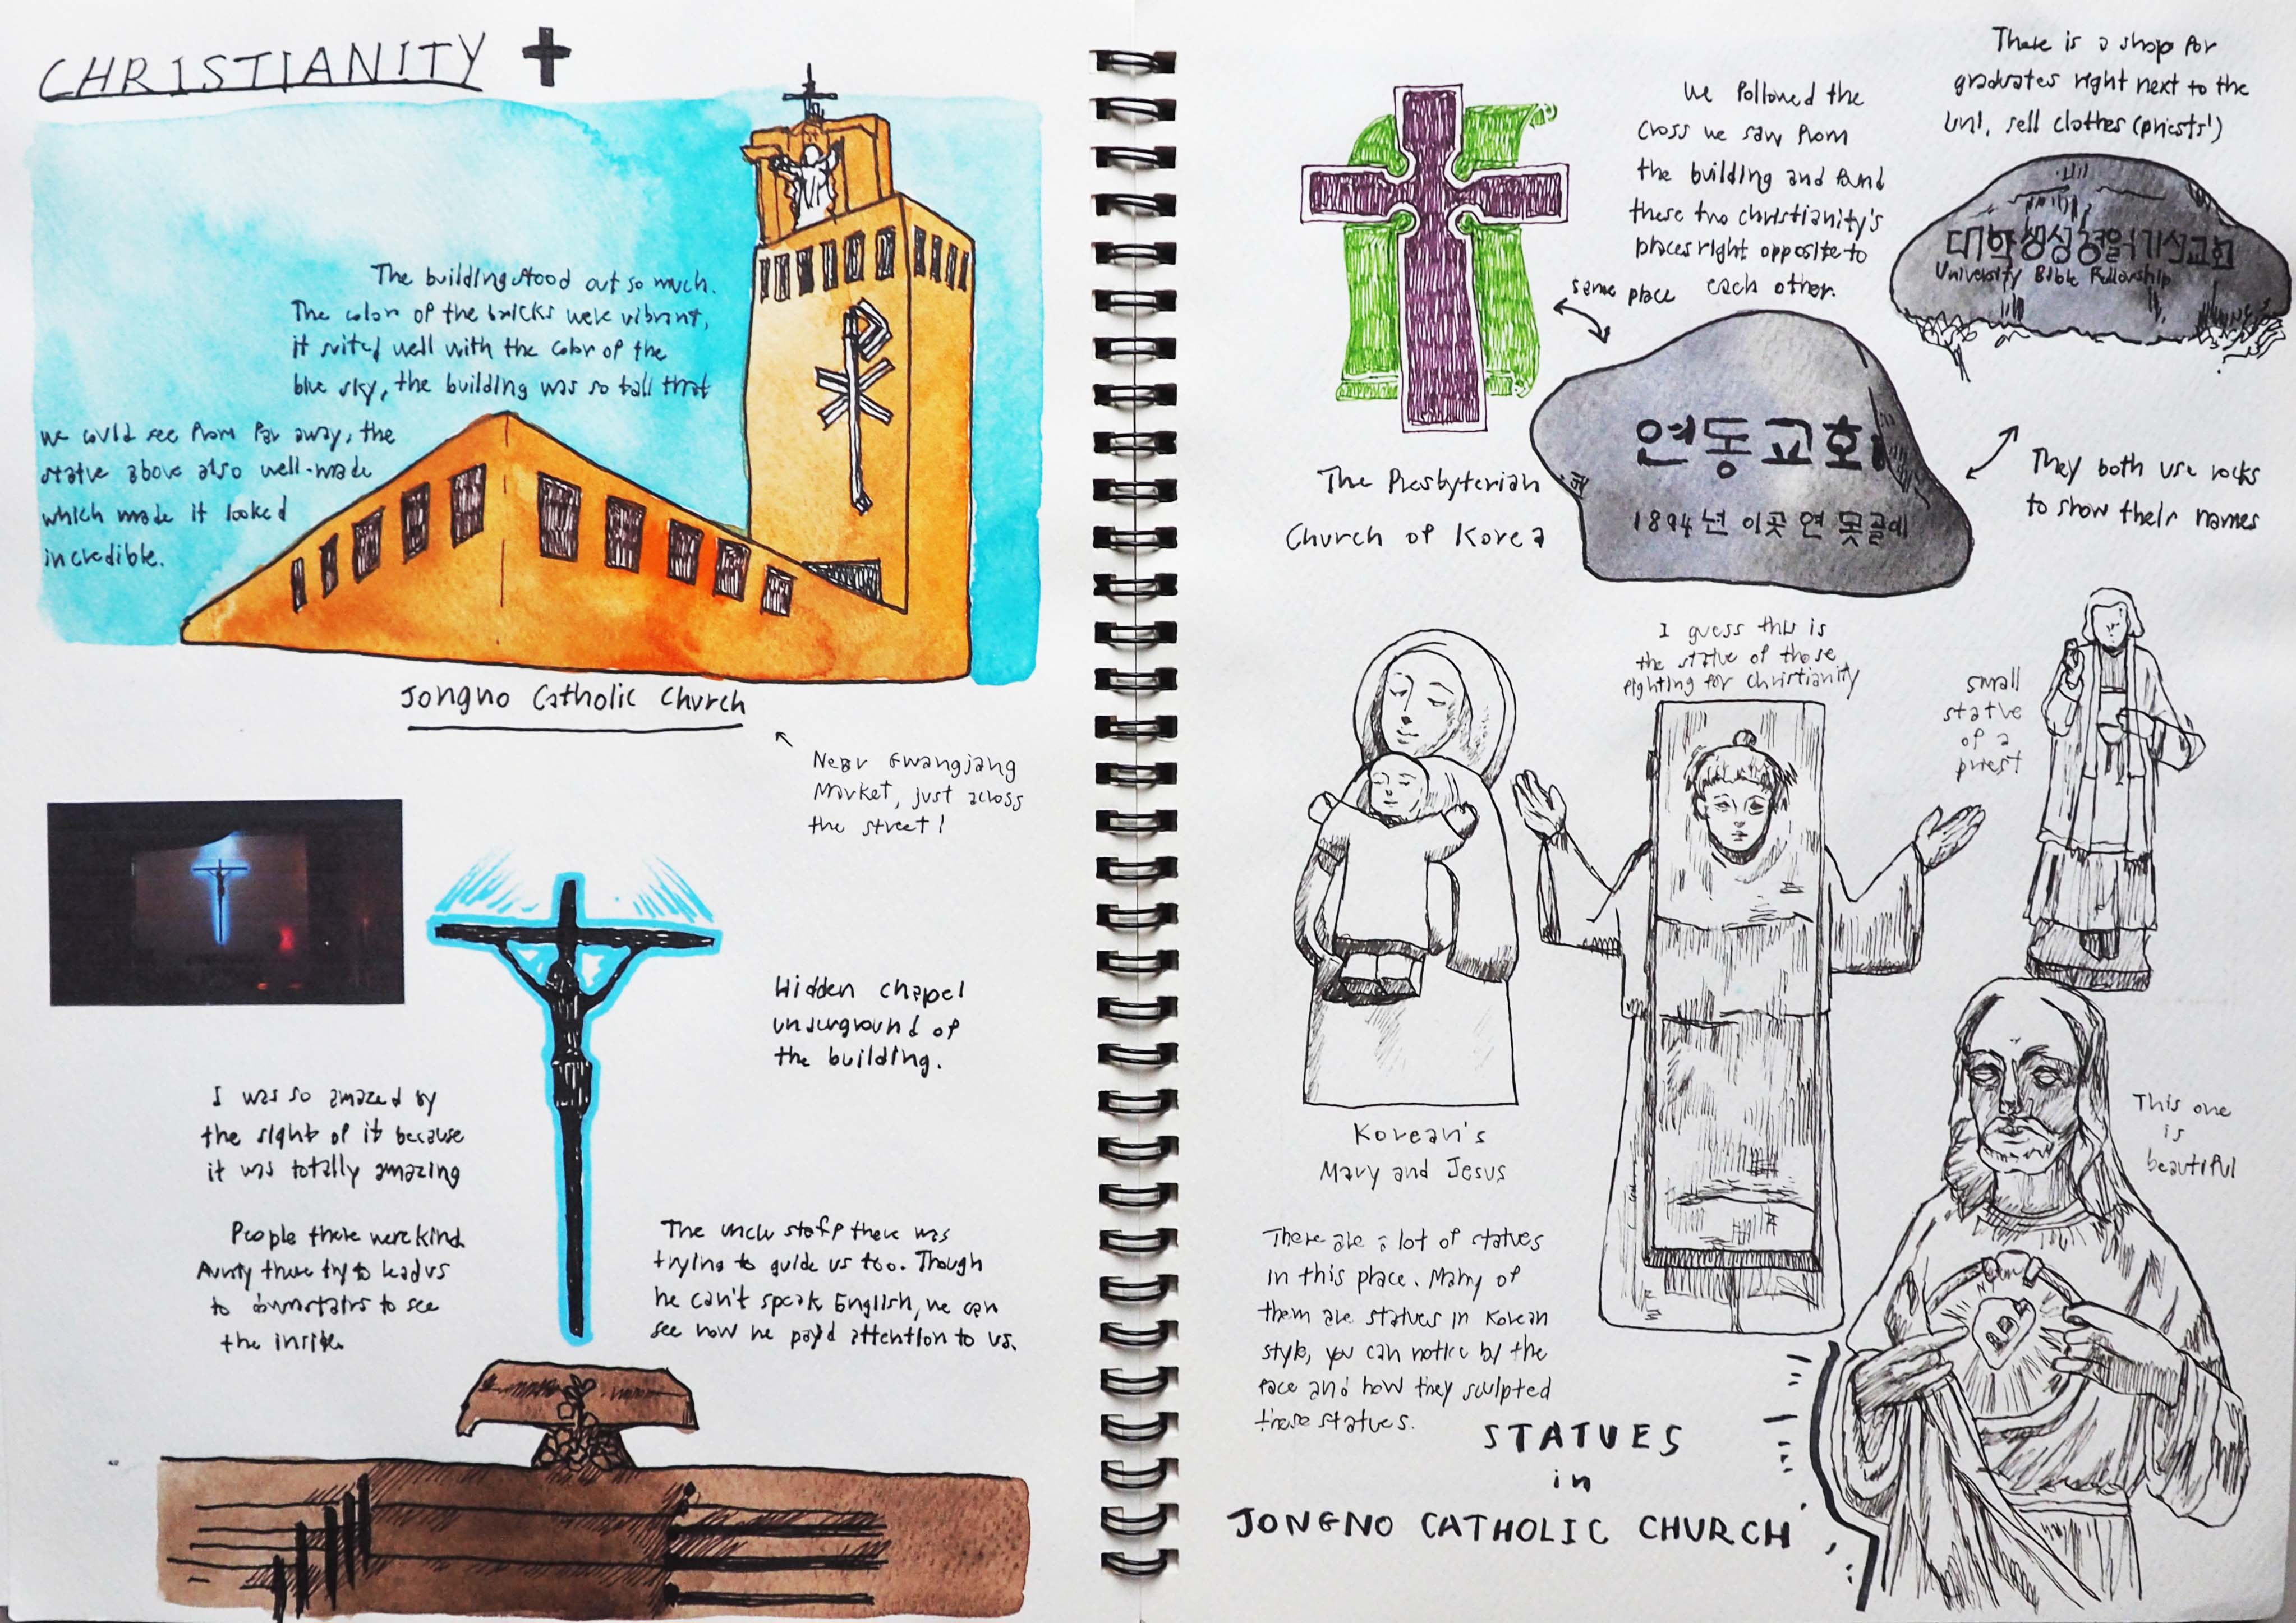 CHRISTIANITY
The building stood out so much.
The color of the bricks were vibrant,
it suited well with the color of the
blue sky, the building was so tall that
we could see from far away, the
statue above also well-made
which made it looked
incredible.
Jongno Catholic Church
Near Gwangjang
Market, just across
the street!
Hidden chapel
underground of
the building.
I was so amazed by
the sight of it because
it was totally amazing
People there were kind
Aunty there try to lead us
to downstairs to see
the inside.
The uncle staff there was
trying to guide us too. Though
he can't speak English, we can
see how he pay'd attention to us.
We followed the
cross we saw from
the building and found
these two christianity's
places right opposite to
each other.
There is a shop for
graduates right next to the
Uni, sell clothes (priests')
대학생성경읽기선교회
University Bible Fellowship
same place
The Presbyterian
Church of Korea
연동교회
1894년 이곳 연못골에
They both use rocks
to show their names
I guess this is
the statue of those
fighting for christianity
small
statue
of a
priest
Korean's
Mary and Jesus
This one
is
beautiful
There are a lot of statues
in this place. Many of
them are statues in Korean
style, you can notice by the
face and how they sculpted
those statues.
STATUES
in
JONGNO CATHOLIC CHURCH